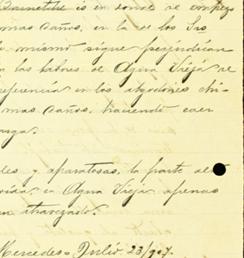 is en donde se empezo
mas daños, en la de los Sres
mismo sigue perjudican
en las labores de Agua Vieja se
referencia en los algodones chi
mas daños, haciendo caer
des y aparatosas, la parte al
en Agua Vieja apenas
atravezado.
Mercedes, Julio 23/907.